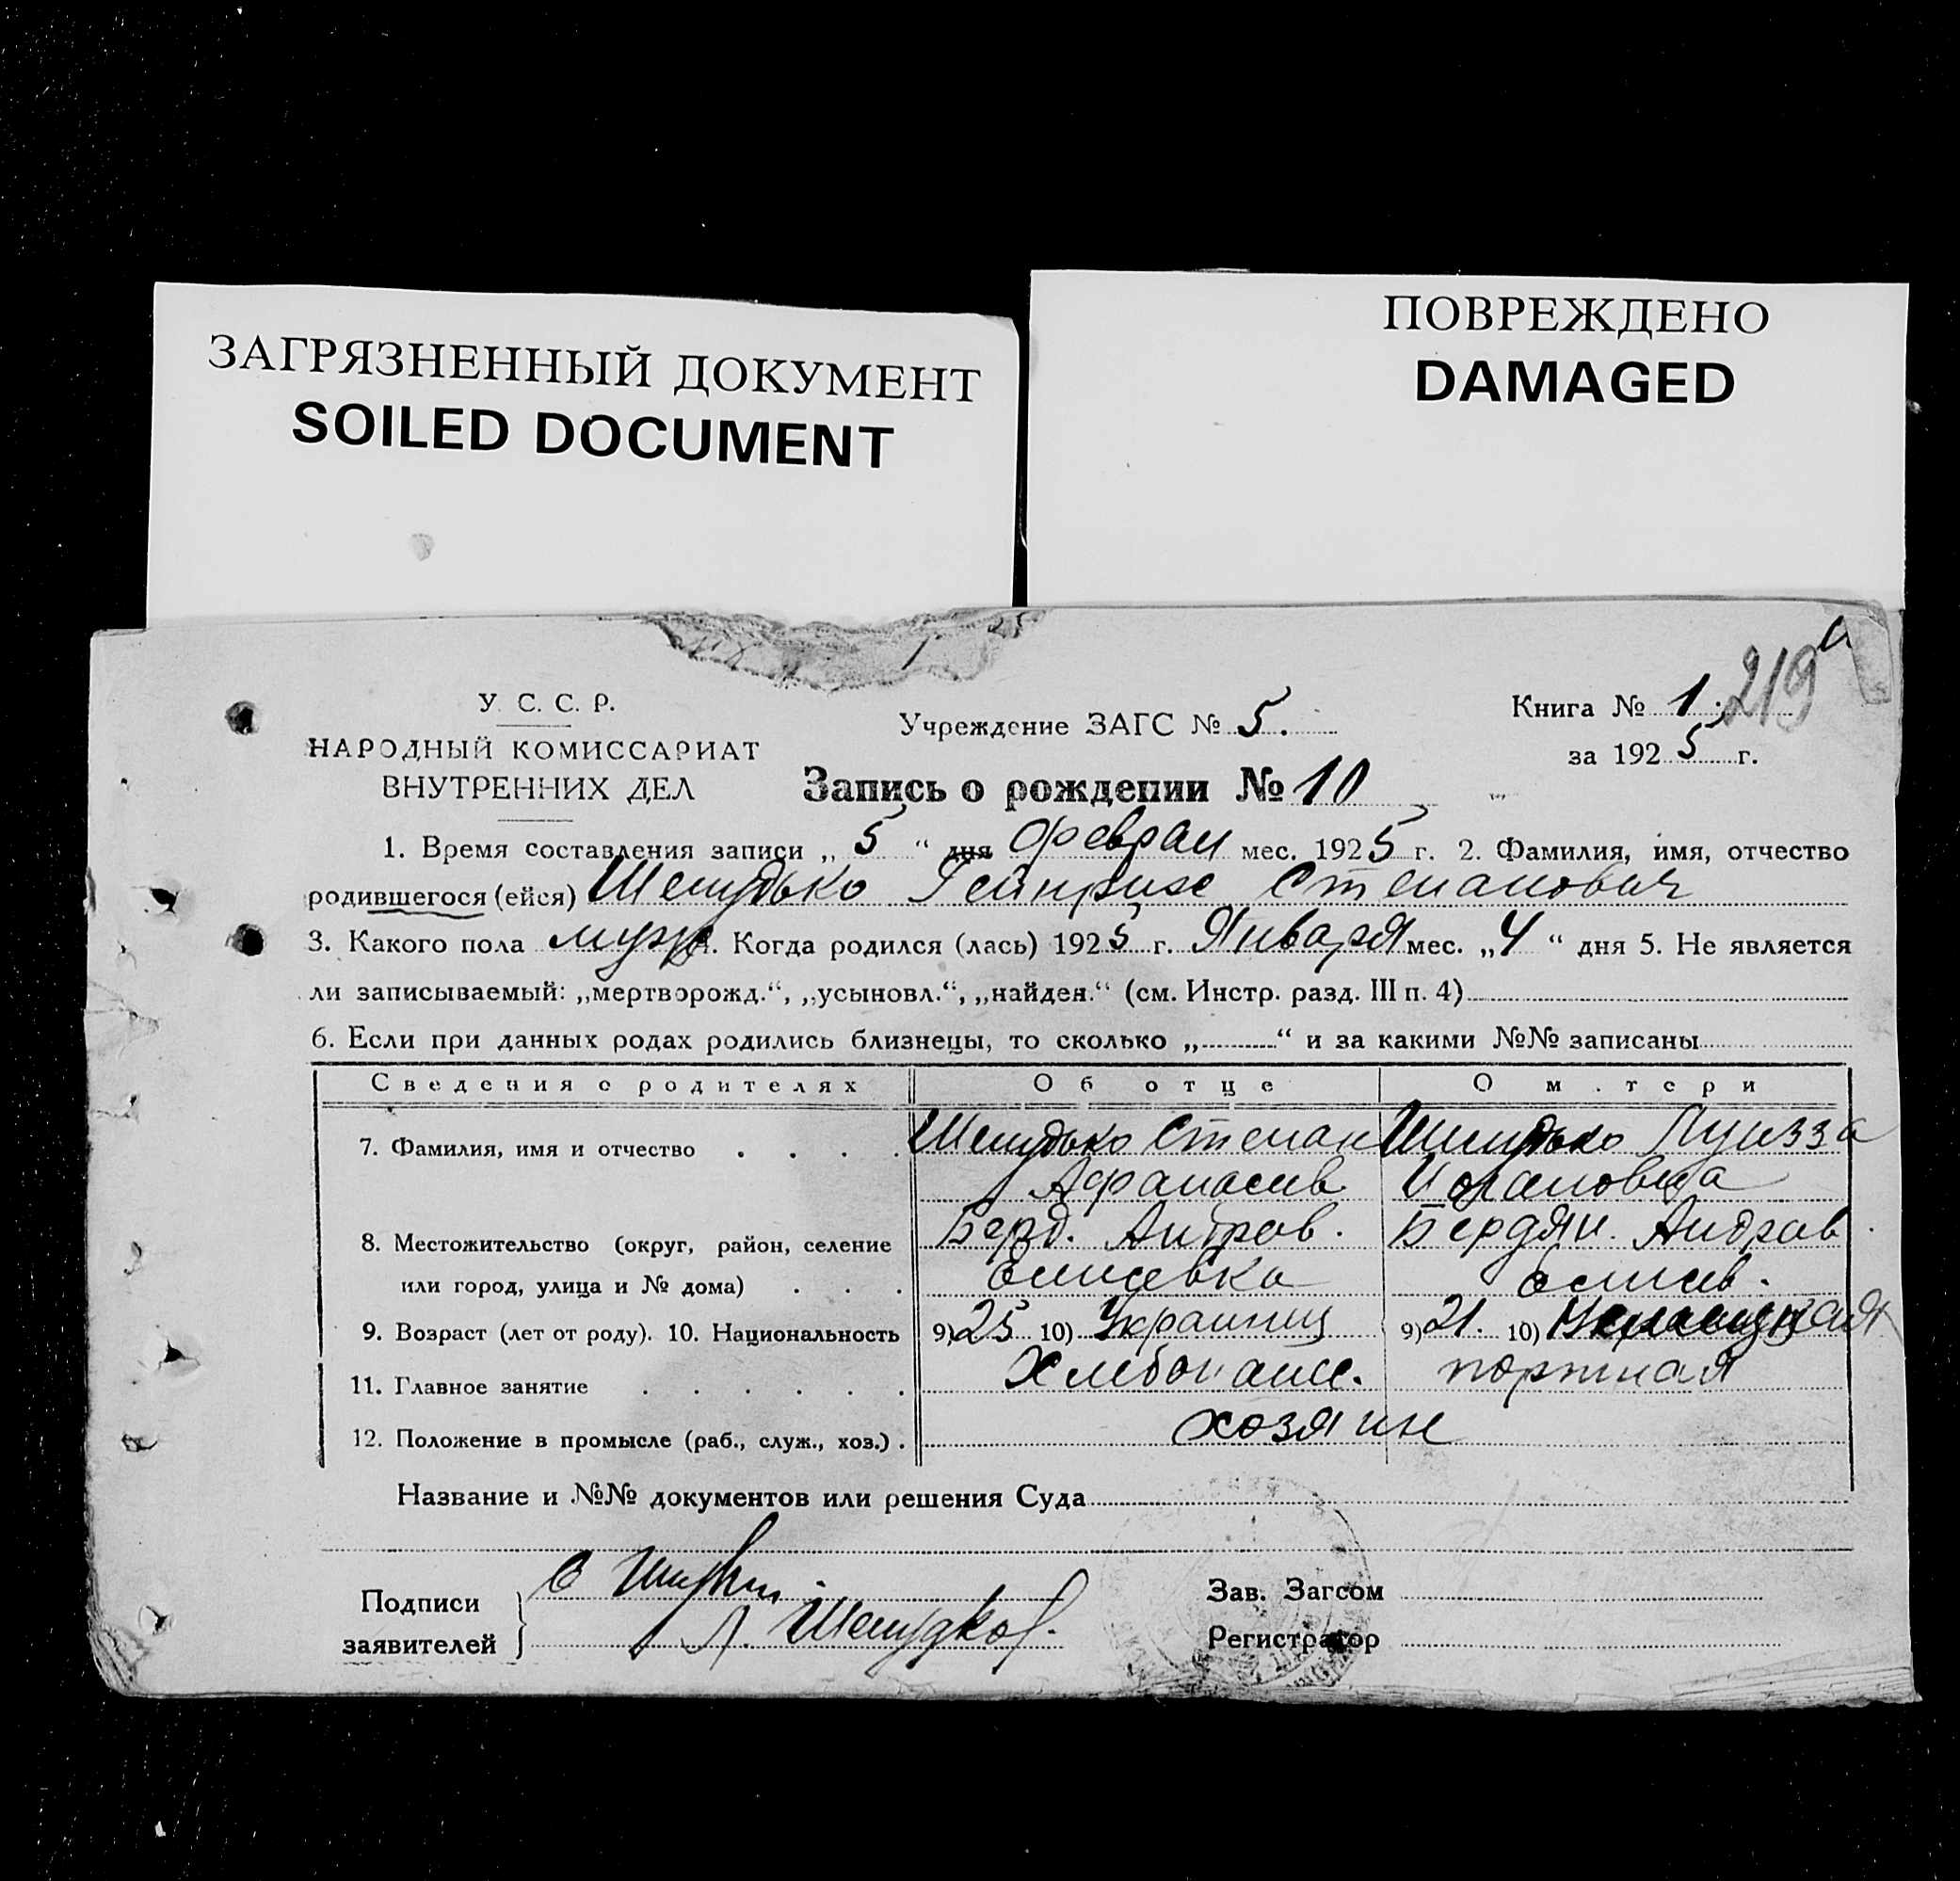 ЗАГРЯЗНЕННЫЙ ДОКУМЕНТ
SOILED DOCUMENT
ПОВРЕЖДЕНО
DAMAGED
У. С. С. Р.
НАРОДНЫЙ КОМИССАРИАТ
ВНУТРЕННИХ ДЕЛ
Учреждение ЗАГС № 5.
Книга № 1. 219
за 1925 г.
Запись о рождении № 10
1. Время составления записи „ 5 “ дня Феврал мес. 1925 г. 2. Фамилия, имя, отчество
родившегося (ейся) Шелудько Гейнрих Степанович
3. Какого пола муж 4. Когда родился (лась) 1925 г. Января мес. „4 “ дня 5. Не является
ли записываемый: „мертворожд.“, „усыновл.“, „найден.“ (см. Инстр. разд. III п. 4)
6. Если при данных родах родились близнецы, то сколько „ “ и за какими №№ записаны
Сведения о родителях Об отце О м.тери
7. Фамилия, имя и отчество . . . . Шелудько Степан Шелудько Луизза
Афанасив Ивановна
8. Местожительство (округ, район, селение Берд. Андров. Бердян. Андрав
или город, улица и № дома) . . .
9. Возраст (лет от роду). 10. Национальность 9) 25 10) Украинец 9) 21. 10)
11. Главное занятие . . . . . . Хлебопаше. портная
12. Положение в промысле (раб., служ., хоз.) . хозяин
Название и №№ документов или решения Суда
Подписи
заявителей
Л. Шелудков.
Зав. Загсом
Регистратор